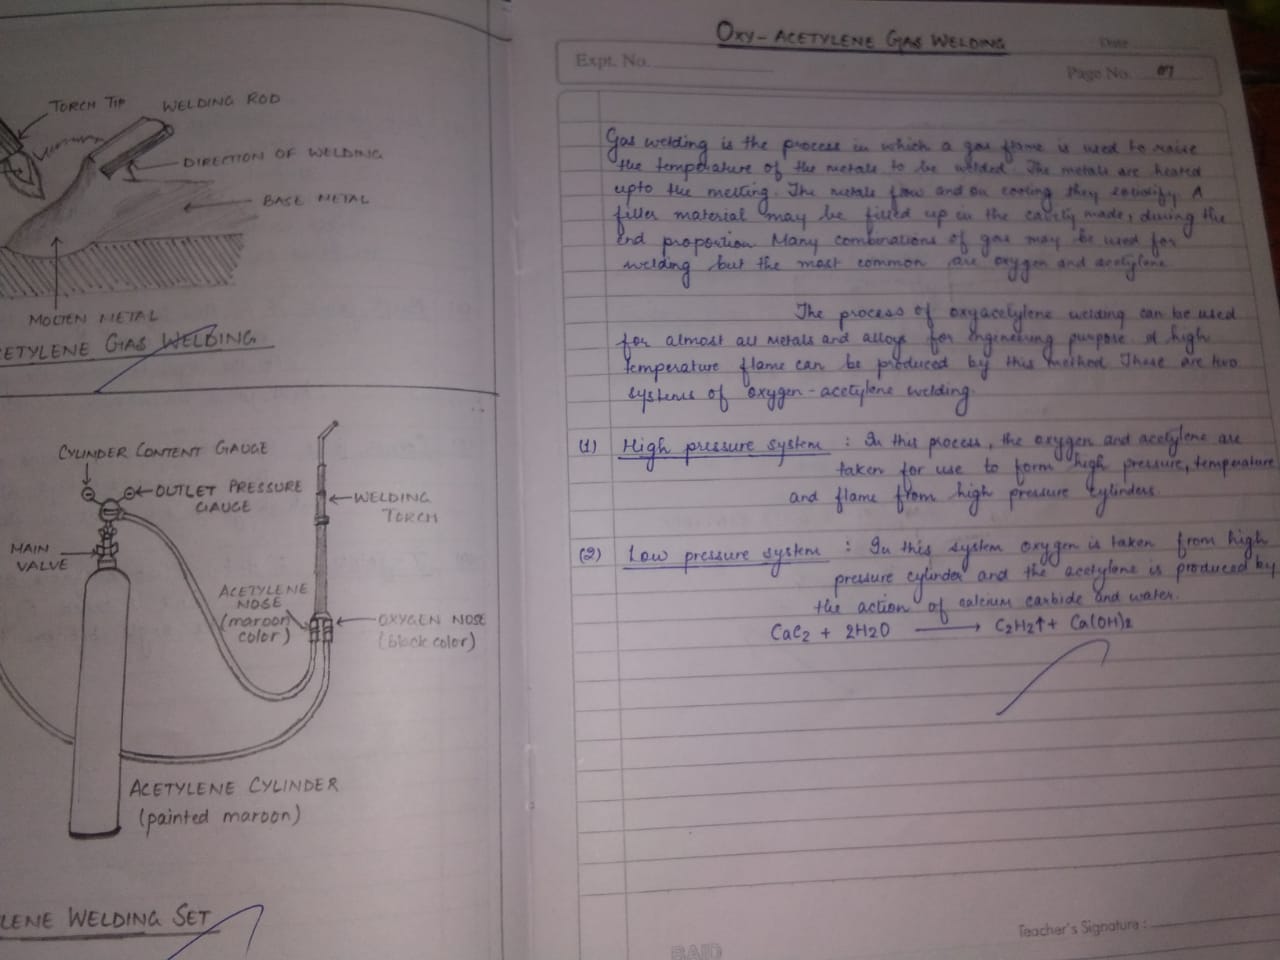 TORCH TIP
WELDING ROD
DIRECTION OF WELDING
BASE METAL
MOLTEN METAL
ETYLENE GAS WELDING
CYLINDER CONTENT GAUGE
OUTLET PRESSURE
GAUGE
WELDING
TORCH
MAIN
VALVE
ACETYLENE
NOSE
(maroon
color)
OXYGEN NOSE
(black color)
ACETYLENE CYLINDER
(painted maroon)
LENE WELDING SET
OXY-ACETYLENE GAS WELDING
Date
Expt. No.
Page No. 07
Gas welding is the process in which a gas flame is used to raise
the temperature of the metals to be welded. The metals are heated
upto the melting. The metals flow and on cooling they solidify. A
filler material may be filled up in the cavity made, during the
end proportion. Many combinations of gas may be used for
welding but the most common are oxygen and acetylene
The process of oxyacetylene welding can be used
for almost all metals and alloys for engineering purpose. A high
temperature flame can be produced by this method. These are two
systems of oxygen-acetylene welding.
(1) High pressure system : In this process, the oxygen and acetylene are
taken for use to form high pressure, temperature
and flame from high pressure cylinders.
(2) Low pressure system : In this system oxygen is taken from high
pressure cylinder and the acetylene is produced by
the action of calcium carbide and water.
CaC2 + 2H2O → C2H2↑ + Ca(OH)2
Teacher's Signature :